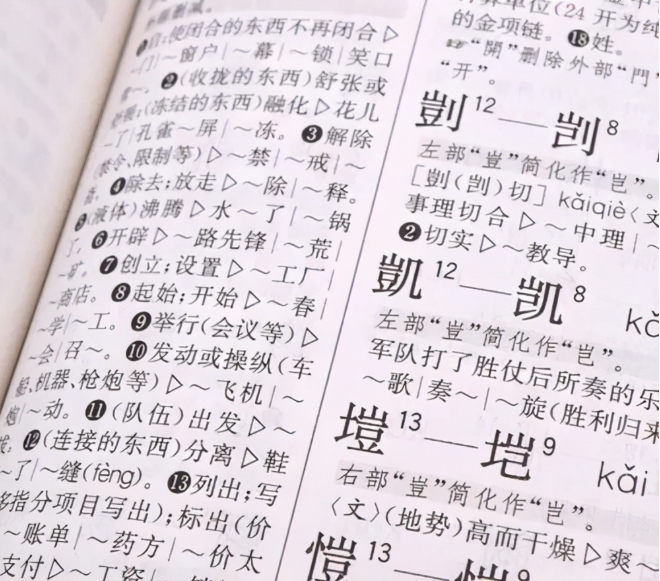 启;使闭合的东西不再闭合▷
门|~窗户|~幕|~锁|笑口
~。❷(收拢的东西)舒张或
(冻结的东西)融化▷花儿
~了|孔雀~屏|~冻。❸解除
(禁令、限制等)▷~禁|~戒|~
❹除去;放走▷~除|~释。
❺(液体)沸腾▷水~了|~锅
了。❻开辟▷~路先锋|~荒|
~矿。❼创立;设置▷~工厂|
~商店。❽起始;开始▷~春|
~学|~工。❾举行(会议等)▷
~会|召~。❿发动或操纵(车
船、机器、枪炮等)▷~飞机|~
炮|~动。⓫(队伍)出发▷~
拔。⓬(连接的东西)分离▷鞋
~了|~缝(fèng)。⓭列出;写
多指分项目写出);标出(价
~账单|~药方|~价太
支付▷~工资|
单位(24开为纯
的金项链。⓲姓。
☞“開”删除外部“門”
“开”。
剴12——剀8
左部“豈”简化作“岂”。
[剴(剀)切] kǎiqiè〈文
事理切合▷~中理|~
❷切实▷~教导。
凱12——凯8 kǎ
左部“豈”简化作“岂”。
军队打了胜仗后所奏的乐
~歌|奏~|~旋(胜利归来
塏13——垲9 kǎi
右部“豈”简化作“岂”。
〈文〉(地势)高而干燥▷爽~
愷13——恺9